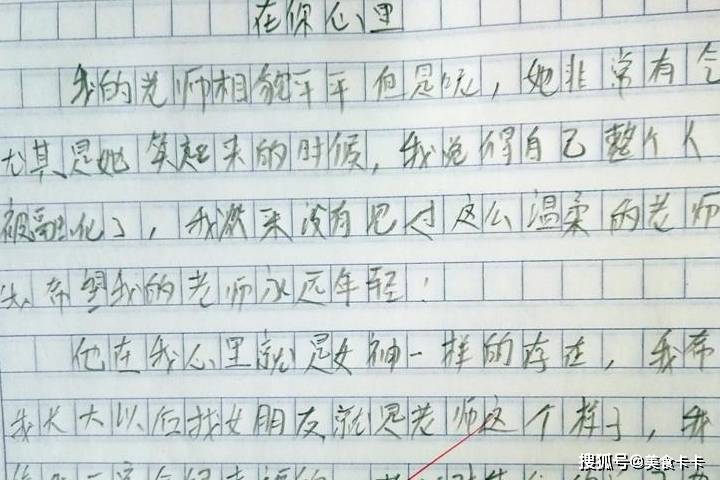 在你心里
我的老师相貌平平但是呢，她非常有气
尤其是她笑起来的时候，我觉得自己整个人
被融化了，我从来没有见过这么温柔的老师
希望我的老师永远年轻！
他在我心里就是女神一样的存在，我希
我长大以后找女朋友就是老师这个样子，我
搜狐号@美食卡卡